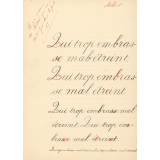 Qui trop embras-
se mal étreint.
Qui trop embras-
se mal étreint
Qui trop embrasse mal
étreint. Qui trop em-
brasse mal étreint.